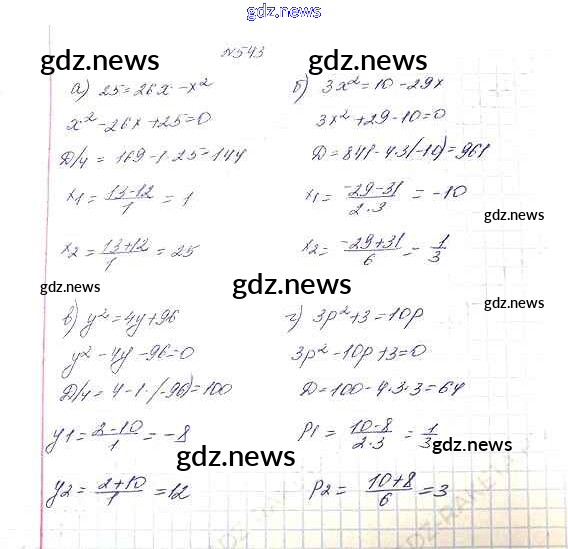 gdz.news
N543
gdz.news gdz.news
а) 25=26x-x²
x²-26x+25=0
D/4 = 169-1·25=144
x1 = (13-12)/1 = 1
x2 = (13+12)/1 = 25
б) 3x²=10-29x
3x²+29-10=0
D=841-4·3(-10)=961
x1 = (-29-31)/(2·3) = -10
gdz.news
x2 = (-29+31)/6 = 1/3
gdz.news gdz.news gdz.news
в) y²=4y+96
y²-4y-96=0
D/4 = 4-1·(-96)=100
y1 = (2-10)/1 = -8
y2 = (2+10)/1 = 12
г) 3p²+3=10p
3p²-10p+3=0
D=100-4·3·3=64
p1 = (10-8)/(2·3) = 1/3
p2 = (10+8)/6 = 3
gdz.news gdz.news